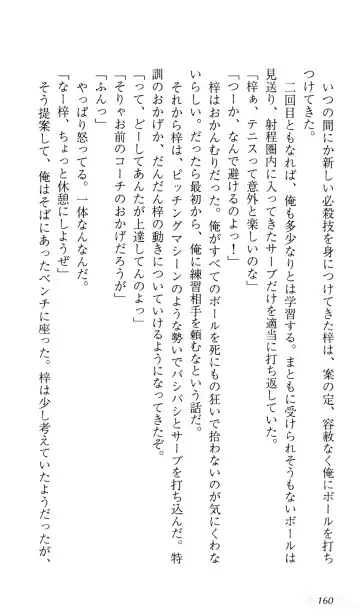 いつの間にか新しい必殺技を身につけてきた梓は、案の定、容赦なく俺にボールを打ち
つけてきた。
二回目ともなれば、俺も多少なりとは学習する。まともに受けられそうもないボールは
見送り、射程圏内に入ってきたサーブだけを適当に打ち返していた。
「梓ぁ、テニスって意外と楽しいのな」
「つーか、なんで避けるのよっ！」
梓はおかんむりだった。俺がすべてのボールを死にもの狂いで拾わないのが気にくわな
いらしい。だったら最初から、俺に練習相手を頼むなという話だ。
それから梓は、ピッチングマシーンのような勢いでバシバシとサーブを打ち込んだ。特
訓のおかげか、だんだん梓の動きについていけるようになってきたぞ。
「って、どーしてあんたが上達してんのよっ」
「そりゃお前のコーチのおかげだろうが」
「ふんっ」
やっぱり怒ってる。一体なんなんだ。
「なー梓、ちょっと休憩にしようぜ」
そう提案して、俺はそばにあったベンチに座った。梓は少し考えていたようだったが、
160